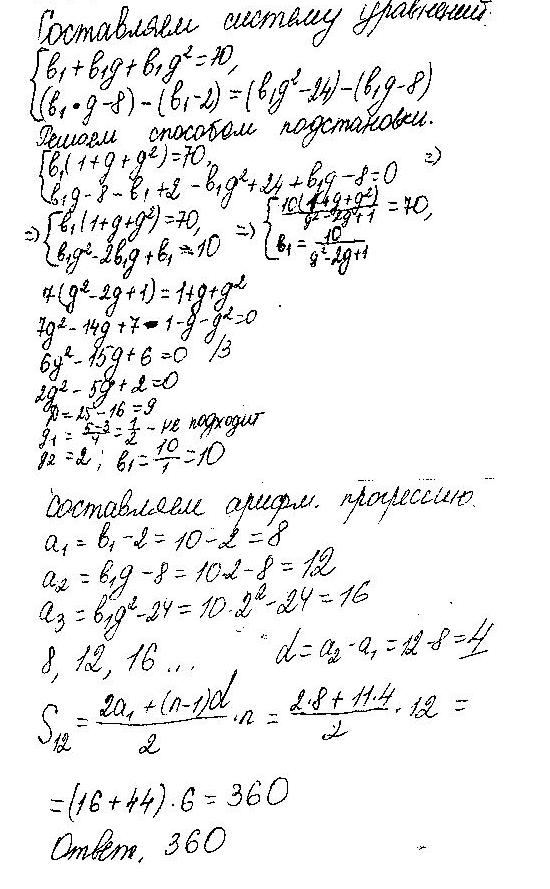 Составляем систему уравнений.
{b₁ + b₁g + b₁g² = 70,
(b₁·g - 8) - (b₁ - 2) = (b₁g² - 24) - (b₁g - 8)
Решаем способом подстановки.
{b₁(1 + g + g²) = 70,
b₁g - 8 - b₁ + 2 - b₁g² + 24 + b₁g - 8 = 0 =>
=> {b₁(1 + g + g²) = 70, b₁g² - 2b₁g + b₁ = 10 => {10(1 + g + g²)/(g² - 2g + 1) = 70, b₁ = 10/(g² - 2g + 1)
7(g² - 2g + 1) = 1 + g + g²
7g² - 14g + 7 - 1 - g - g² = 0
6g² - 15g + 6 = 0 /3
2g² - 5g + 2 = 0
D = 25 - 16 = 9
g₁ = (5-3)/4 = 1/2 - не подходит
g₂ = 2; b₁ = 10/1 = 10
Составляем арифм. прогрессию.
a₁ = b₁ - 2 = 10 - 2 = 8
a₂ = b₁g - 8 = 10·2 - 8 = 12
a₃ = b₁g² - 24 = 10·2² - 24 = 16
8, 12, 16 ... d = a₂ - a₁ = 12 - 8 = 4
S₁₂ = (2a₁ + (n-1)d)/2 · n = (2·8 + 11·4)/2 · 12 =
= (16 + 44)·6 = 360
Ответ. 360